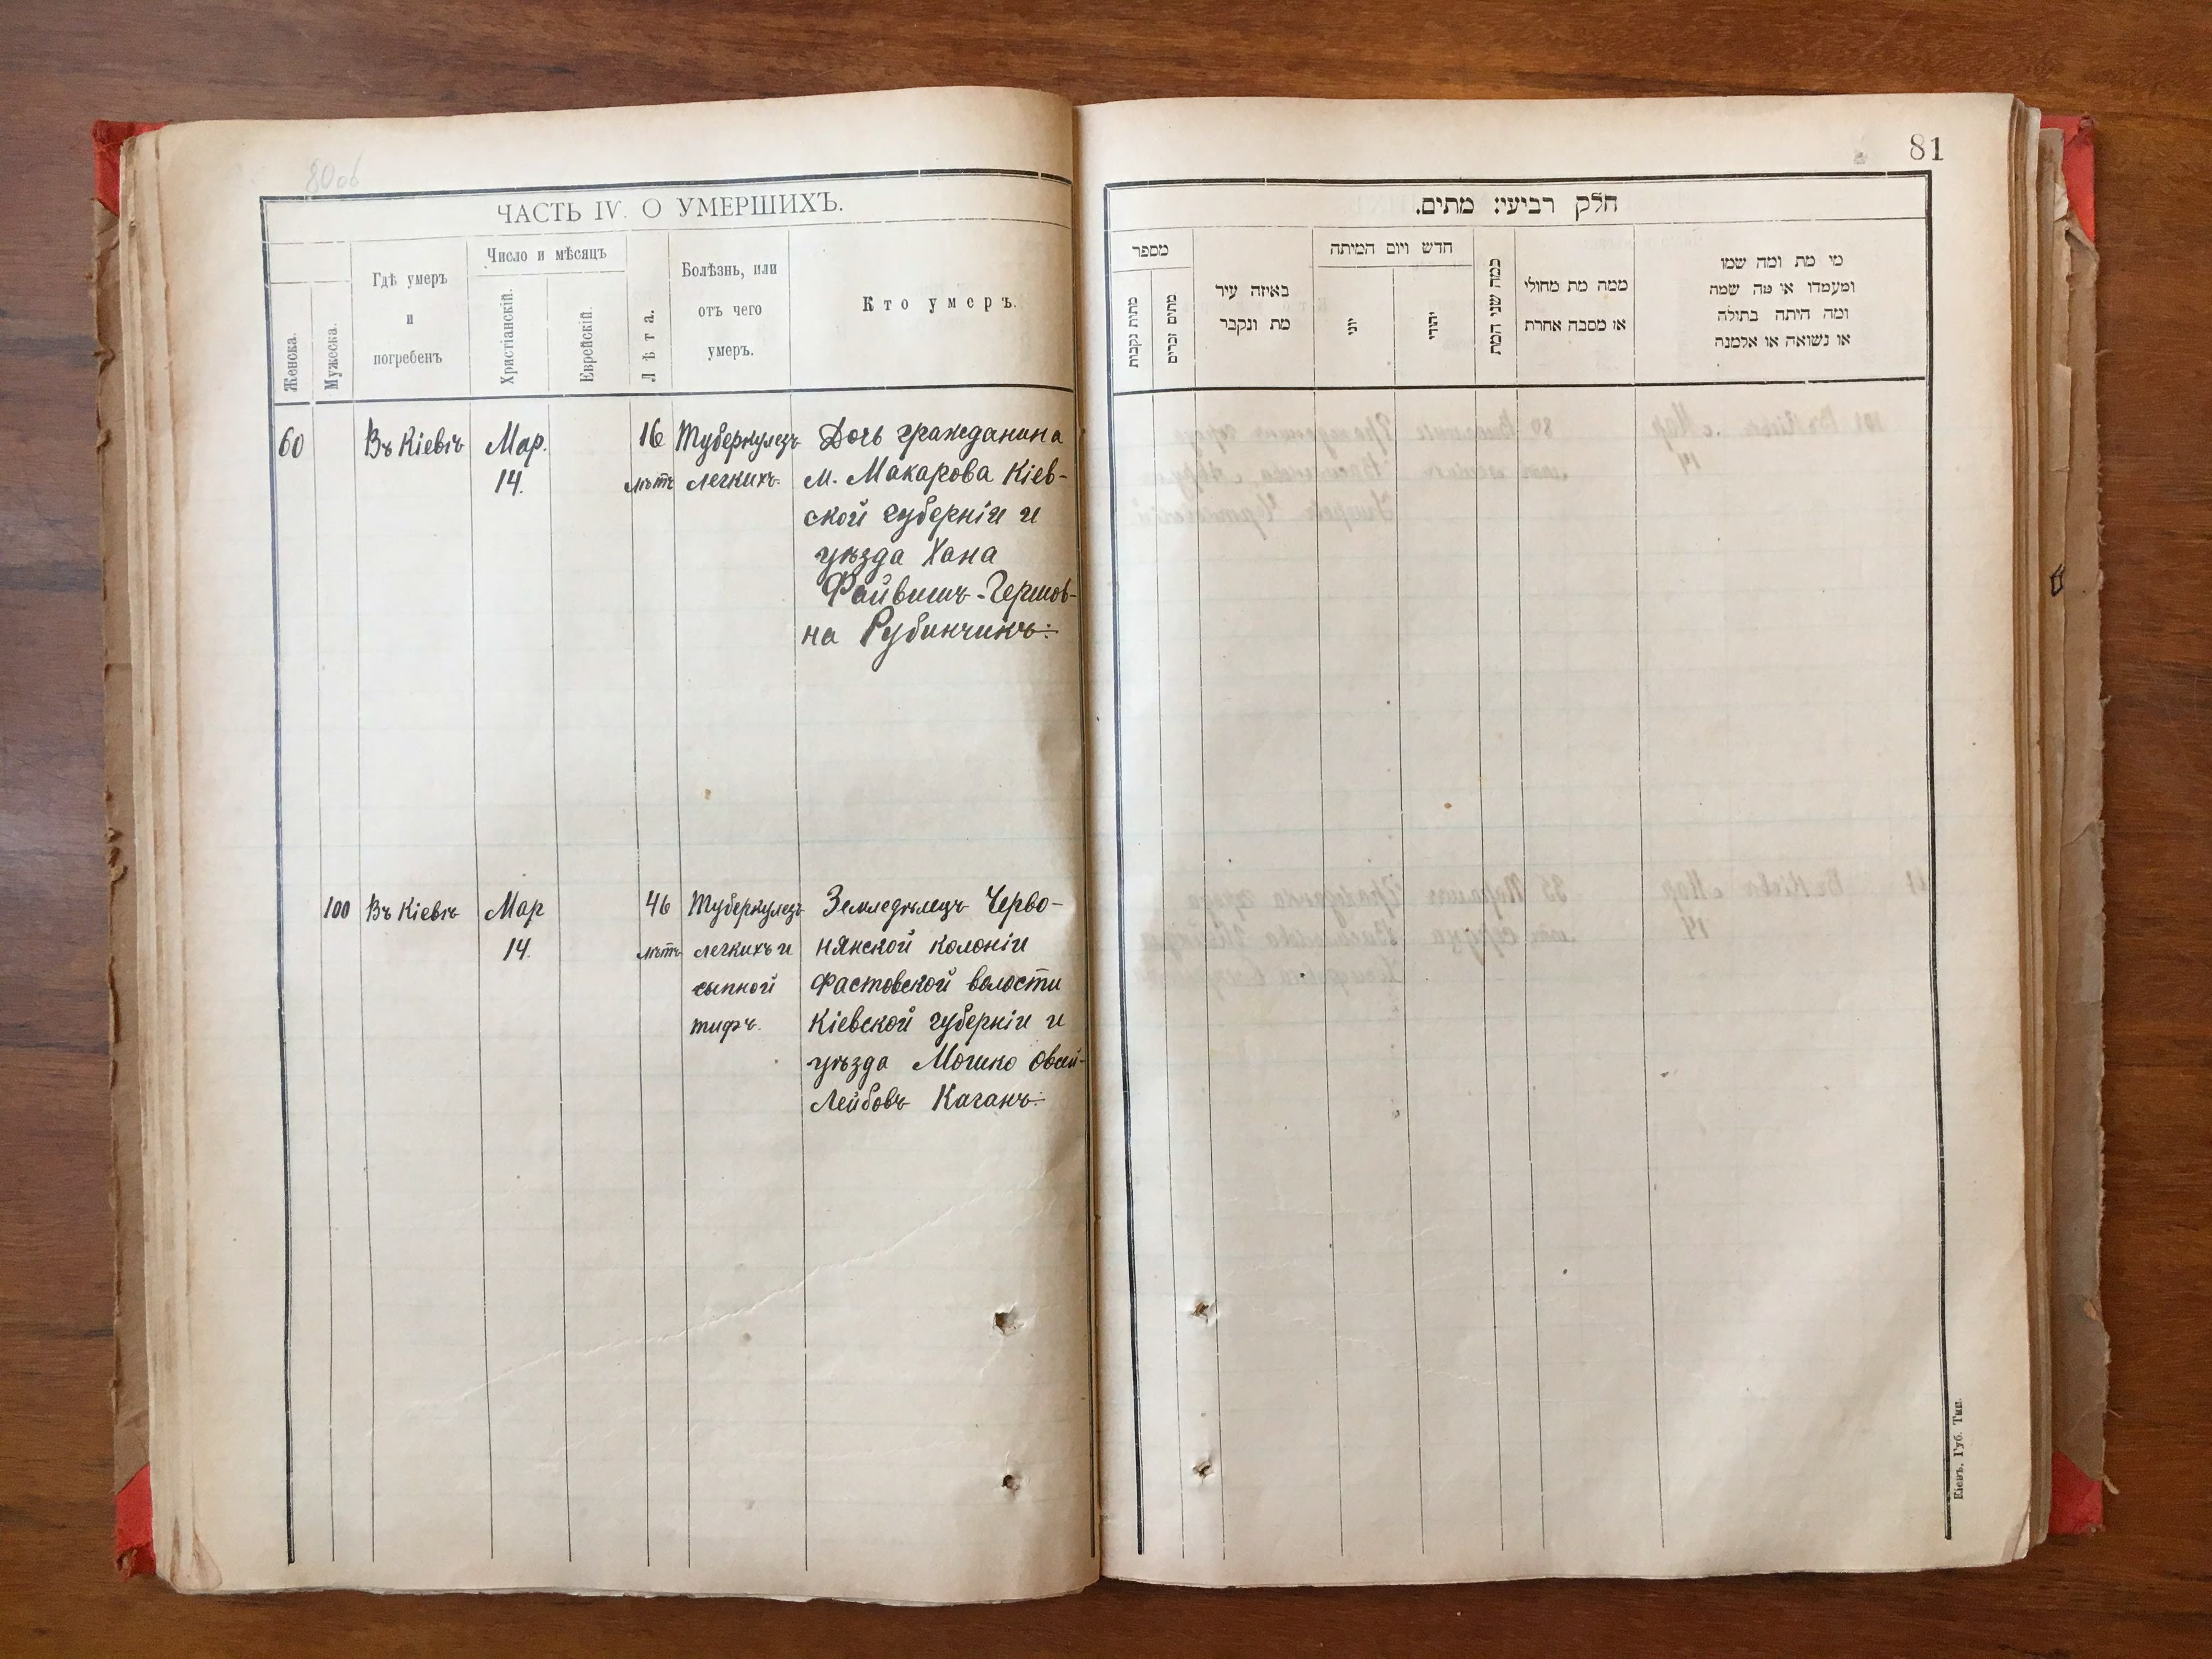 80об
ЧАСТЬ IV. О УМЕРШИХЪ.
Женска.
Мужеска.
Гдѣ умеръ
и
погребенъ
Число и мѣсяцъ
Христіанскій.
Еврейскій.
Лѣта.
Болѣзнь, или
отъ чего
умеръ.
Кто умеръ.
60 Въ Кіевѣ Мар. 16 Туберкулезъ Дочь гражданина
14. лѣтъ легкихъ. м. Макарова Кіев-
ской губерніи и
уѣзда Хана
Файвишъ-Гершов-
на Рубинчикъ.
100 Въ Кіевѣ Мар 46 Туберкулезъ Земледѣлецъ Черво-
14. лѣтъ легкихъ и нянской колоніи
сыпной Фастовской волости
тифъ. Кіевской губерніи и
уѣзда Мошко
Лейбовъ Каганъ.
81
חלק רביעי: מתים.
מספר
מתות נקבות
מתים זכרים
באיזה עיר
מת ונקבר
חדש ויום המיתה
יוני
יהודי
כמה שני המת
ממה מת מחולי
או מסבה אחרת
מי מת ומה שמו
ומעמדו או מה שמה
ומה היתה בתולה
או נשואה או אלמנה
Кіевъ, Губ. Тип.